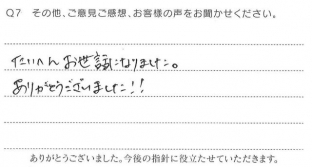 Q7 その他、ご意見ご感想、お客様の声をお聞かせください。
たいへんお世話になりました。
ありがとうございました!!
ありがとうございました。今後の指針に役立たせていただきます。